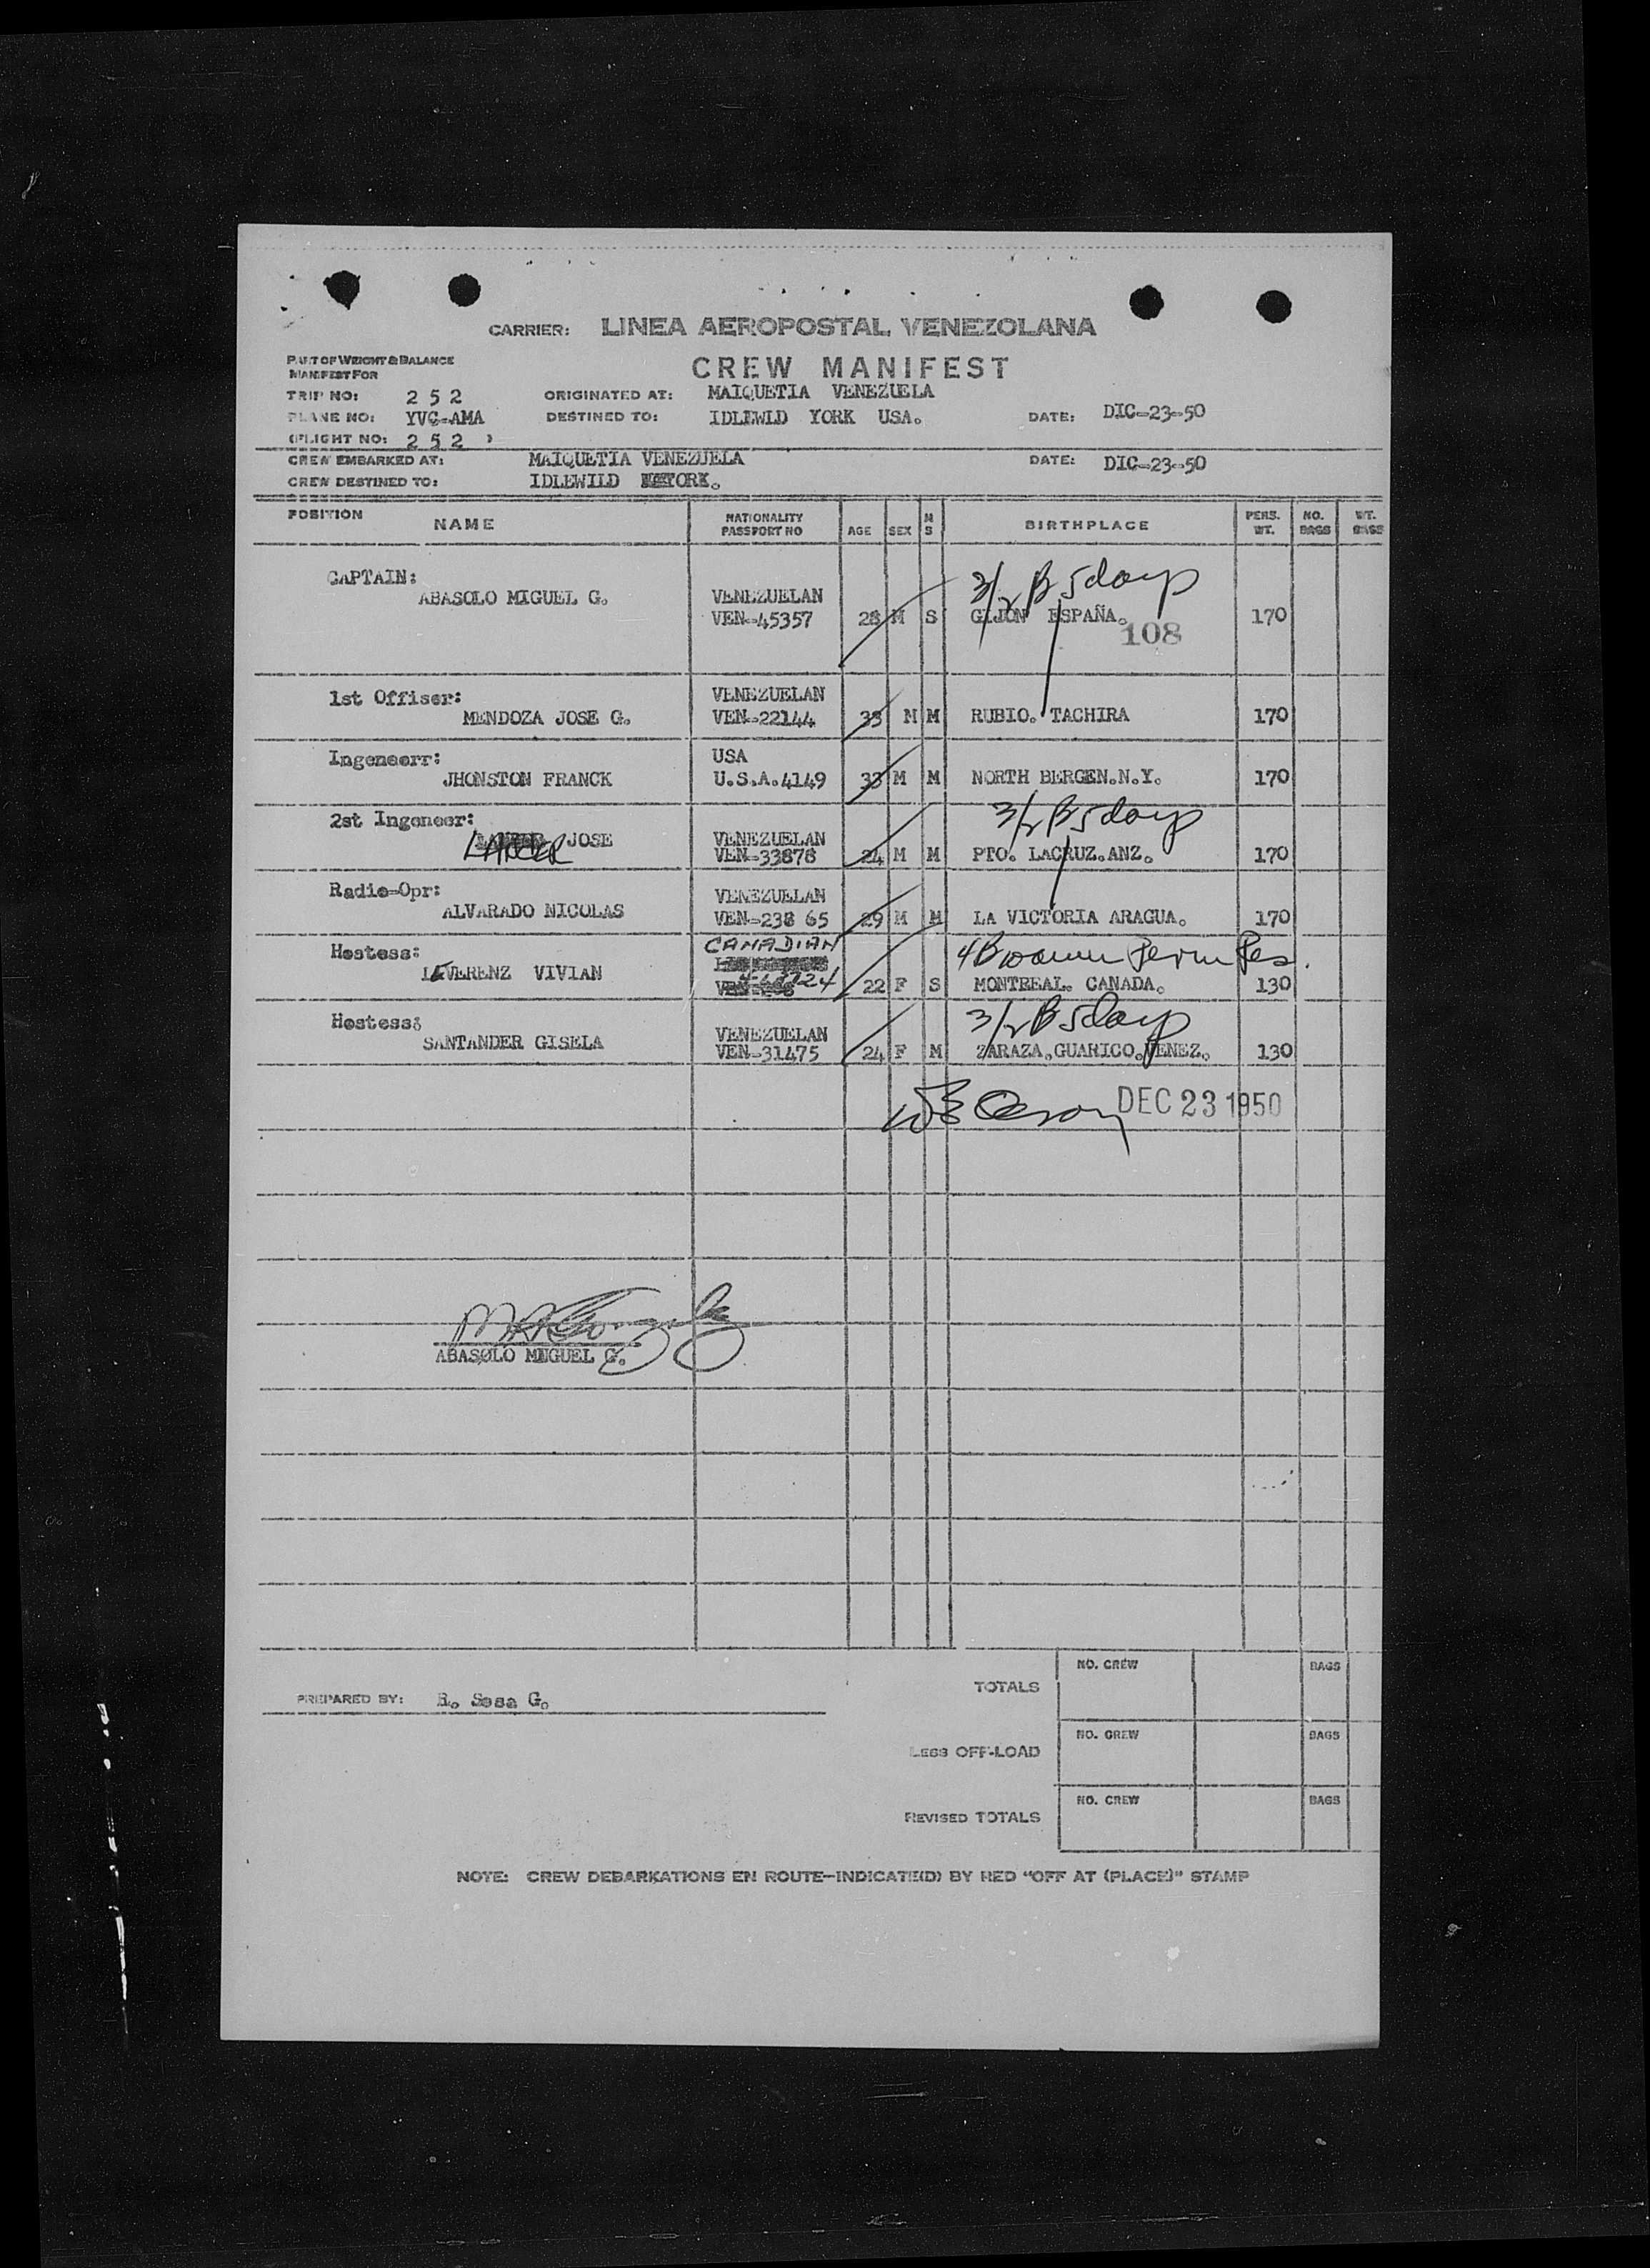 CARRIER: LINEA AEROPOSTAL VENEZOLANA
PART OF WEIGHT & BALANCE
MANIFEST FOR
CREW MANIFEST
TRIP NO: 2 5 2 ORIGINATED AT: MAIQUETIA VENEZUELA
PLANE NO: YVC-AMA DESTINED TO: IDLEWLD YORK USA. DATE: DIC-23-50
(FLIGHT NO: 2 5 2 )
CREW EMBARKED AT: MAIQUETIA VENEZUELA DATE: DIC-23-50
CREW DESTINED TO: IDLEWILD YORK.
POSITION NAME NATIONALITY PASSPORT NO AGE SEX M S BIRTHPLACE PERS. WT. NO. BAGS WT. BAGS
3/2 B 5 days
CAPTAIN:
ABASOLO MIGUEL G. VENEZUELAN
VEN-45357 28 M S GIJON ESPAÑA. 170
108
1st Offiser: VENEZUELAN
MENDOZA JOSE G. VEN-22144 33 M M RUBIO. TACHIRA 170
Ingeneerr: USA
JHONSTON FRANCK U.S.A.4149 33 M M NORTH BERGEN.N.Y. 170
2st Ingeneer: 3/2 B 5 days
LARDER JOSE VENEZUELAN
VEN-33878 24 M M PTO. LACRUZ.ANZ. 170
Radio-Opr: VENEZUELAN
ALVARADO NICOLAS VEN-238 65 29 M M LA VICTORIA ARAGUA. 170
Hostess: CANADIAN 4 B Perm Res.
LEVERENZ VIVIAN 22 F S MONTREAL. CANADA. 130
Hostess: 3/2 B 5 days
SANTANDER GISELA VENEZUELAN
VEN-31475 24 F M ZARAZA.GUARICO.VENEZ. 130
DEC 23 1950
ABASOLO MIGUEL G.
NO. CREW BAGS
TOTALS
PREPARED BY: R. Sosa G.
NO. CREW BAGS
LESS OFF-LOAD
NO. CREW BAGS
REVISED TOTALS
NOTE: CREW DEBARKATIONS EN ROUTE—INDICATE(D) BY RED "OFF AT (PLACE)" STAMP